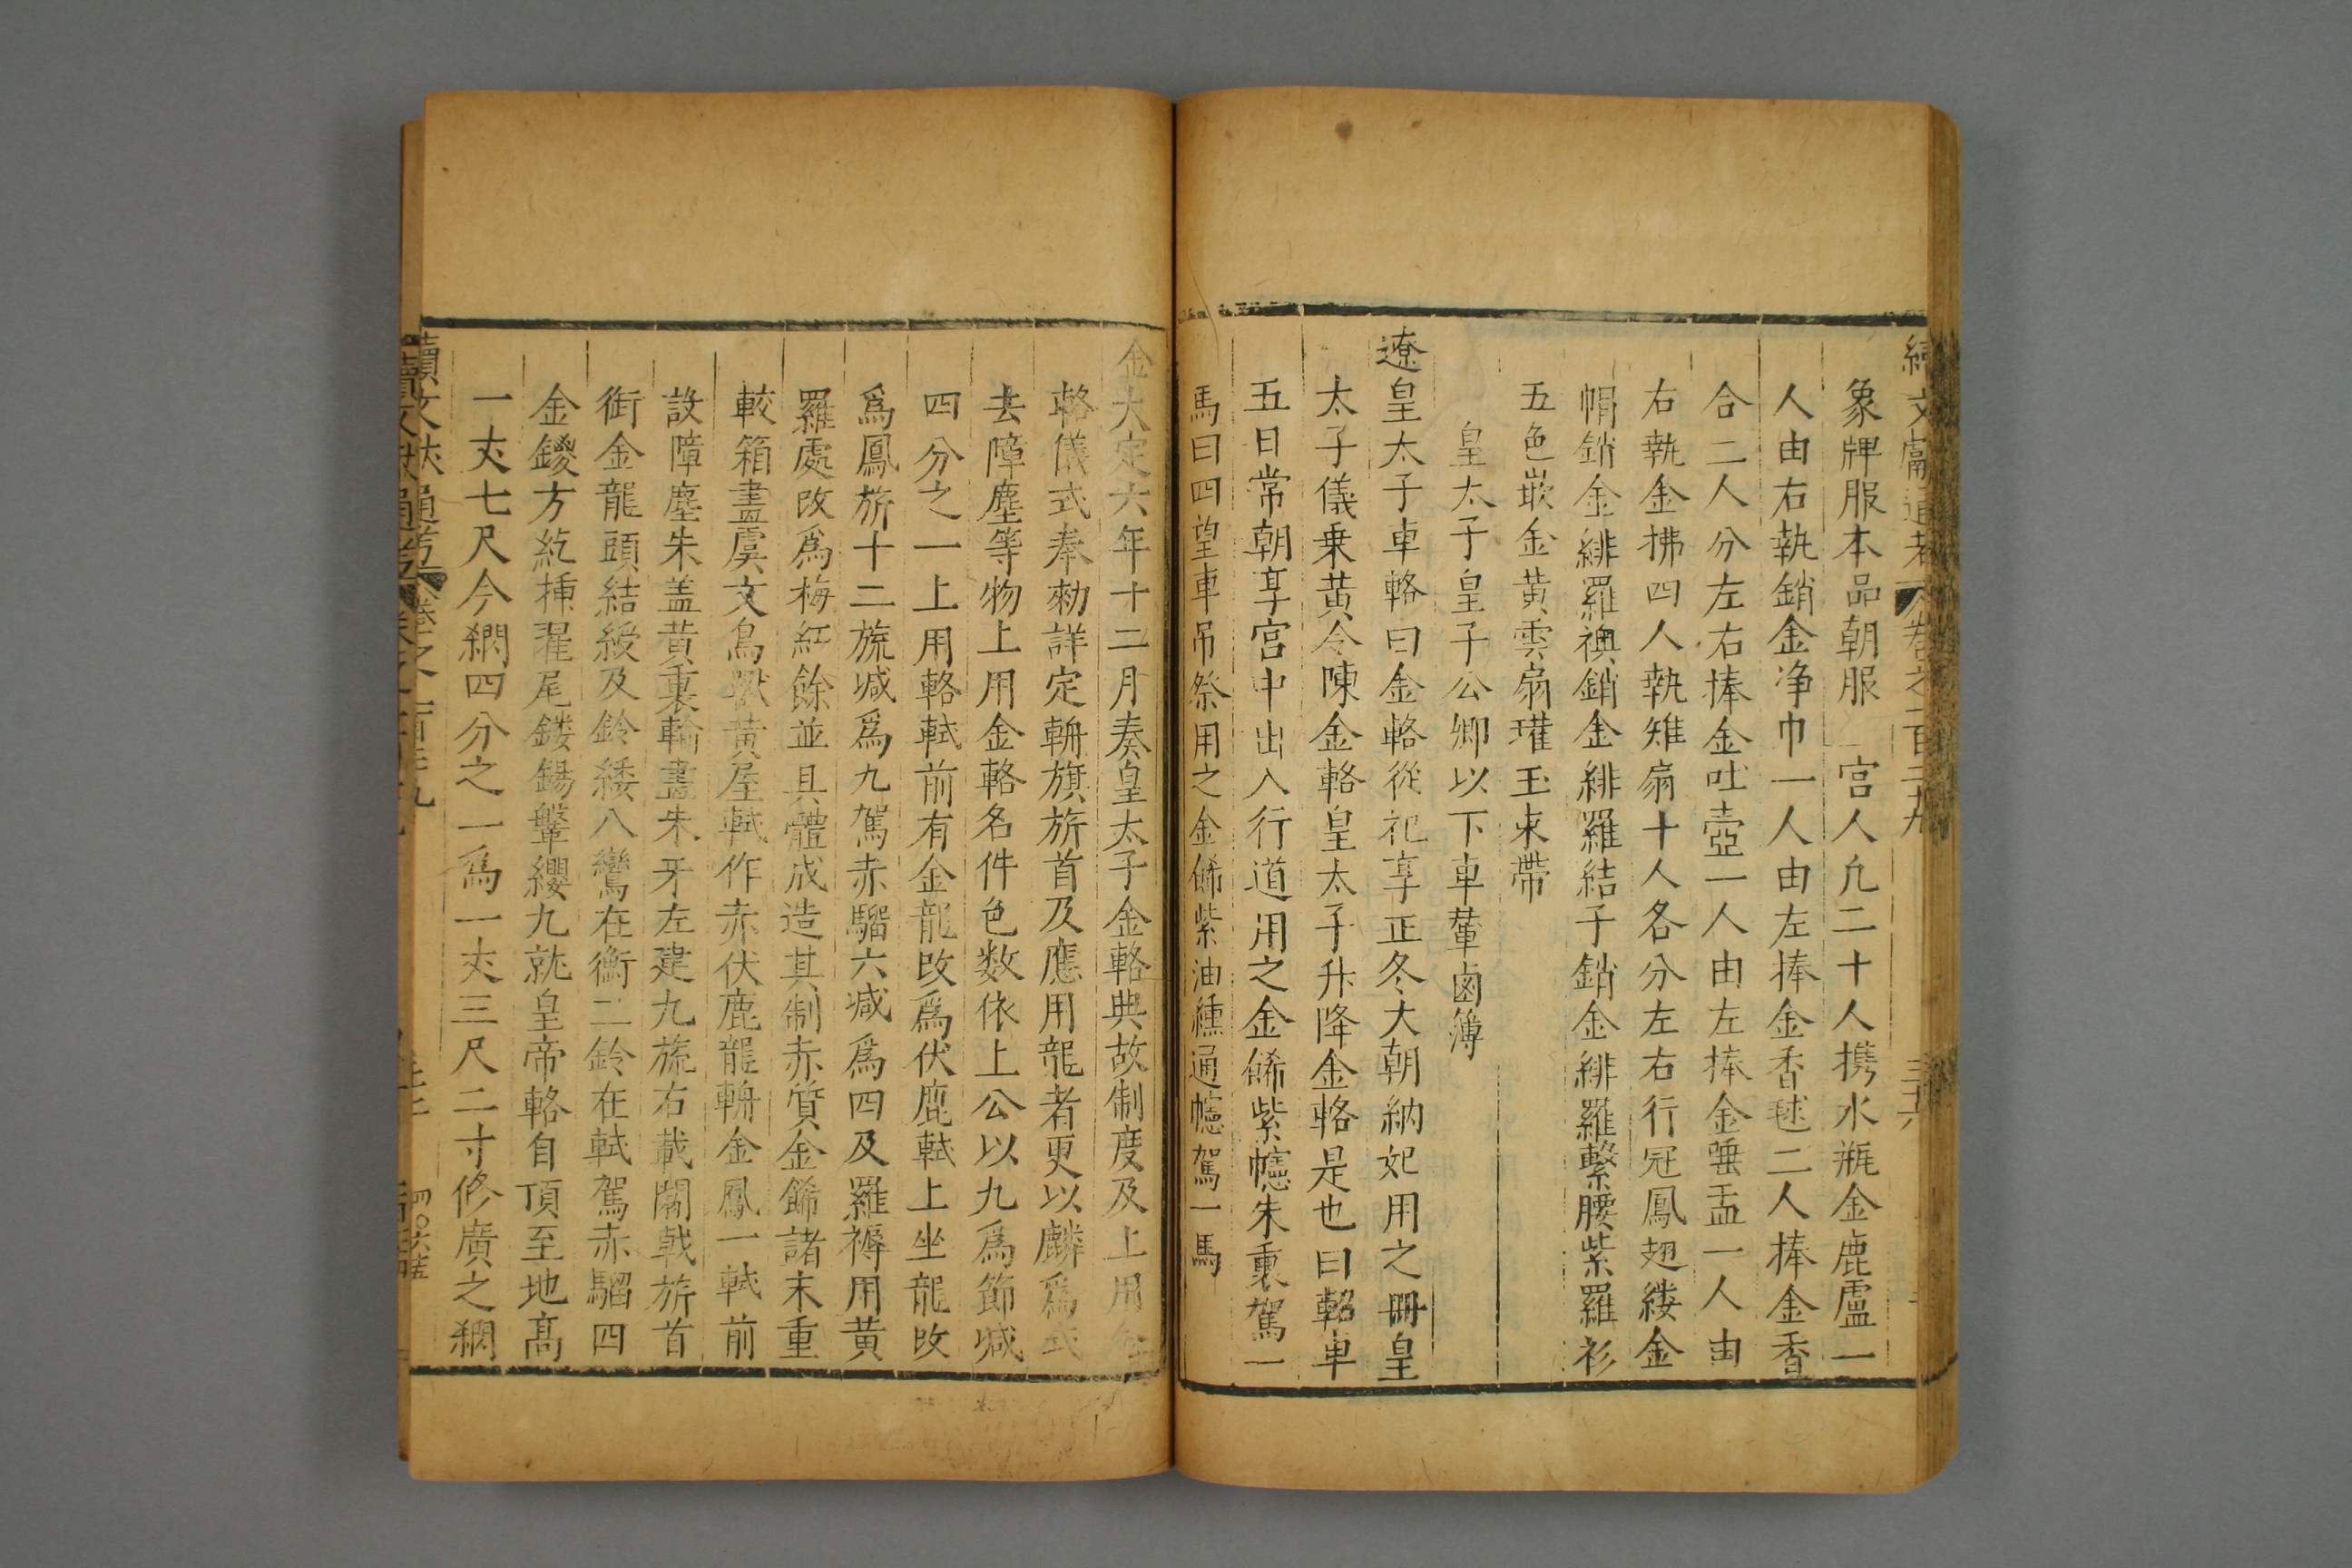 續文獻通考 卷之一百二十九 三十六
象牌服本品朝服 宮人凡二十人携水瓶金鹿盧一
人由右執銷金净巾一人由左捧金香毬二人捧金香
合二人分左右捧金吐壺一人由左捧金唾盂一人由
右執金拂四人執雉扇十人各分左右行冠鳳翅縷金
帽銷金緋羅襖銷金緋羅結子銷金緋羅繫腰紫羅衫
五色嵌金黃雲扇瓘玉束帶
皇太子皇子公卿以下車輦鹵簿
遼皇太子車輅曰金輅從祀享正冬大朝納妃用之冊皇
太子儀乗黃令陳金輅皇太子升降金輅是也曰軺車
五日常朝享宮中出入行道用之金餙紫幰朱裏駕一
馬曰四望車吊祭用之金餙紫油纁通幰駕一馬
金大定六年十二月奏皇太子金輅典故制度及上用金
輅儀式奉勑詳定輈旗旂首及應用龍者更以麟爲式
去障塵等物上用金輅名件色数依上公以九爲節减
四分之一上用輅軾前有金龍改爲伏鹿軾上坐龍改
爲鳳旂十二旒减爲九駕赤騮六减爲四及羅褥用黃
羅處改爲梅紅餘並具體成造其制赤質金餙諸末重
較箱畫虡文鳥獸黃屋軾作赤伏鹿龍輈金鳳一軾前
設障塵朱盖黃裏輪畫朱牙左建九旒右載闟戟旂首
銜金龍頭結綬及鈴緌八鸞在衡二鈴在軾駕赤騮四
金鍐方釳揷翟尾鏤鍚鞶纓九就皇帝輅自頂至地高
一丈七尺今網四分之一爲一丈三尺二寸修廣之網
續文獻通考 卷之一百二十九